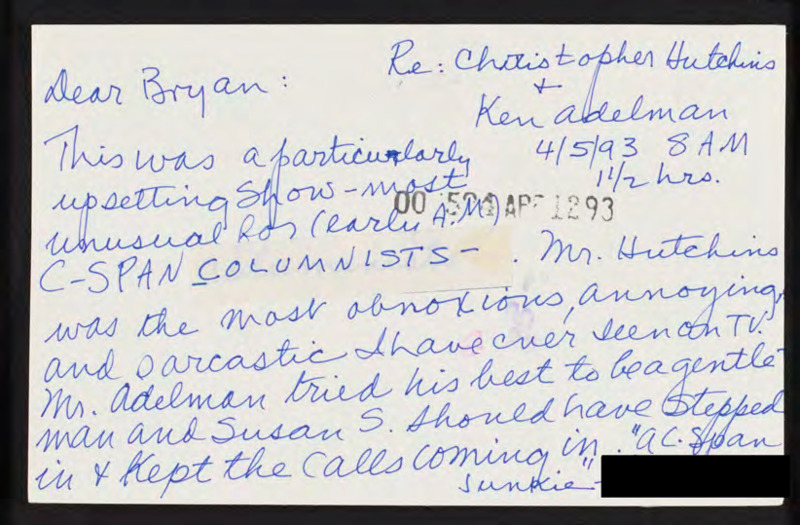 Re: Christopher Hutchins
+
Dear Bryan:
Ken Adelman
4/5/93 8 AM
1 1/2 hrs.
This was a particularly
upsetting Show - most
00 504 APR 12 93
unusual for (early A.M.)
C-SPAN COLUMNISTS - . Mr. Hutchins
was the most obnoxious, annoying,
and sarcastic I have ever seen on TV.
Mr. Adelman tried his best to be a gentle
man and Susan S. should have stepped
in & kept the calls coming in. "A C-Span
Junkie" -